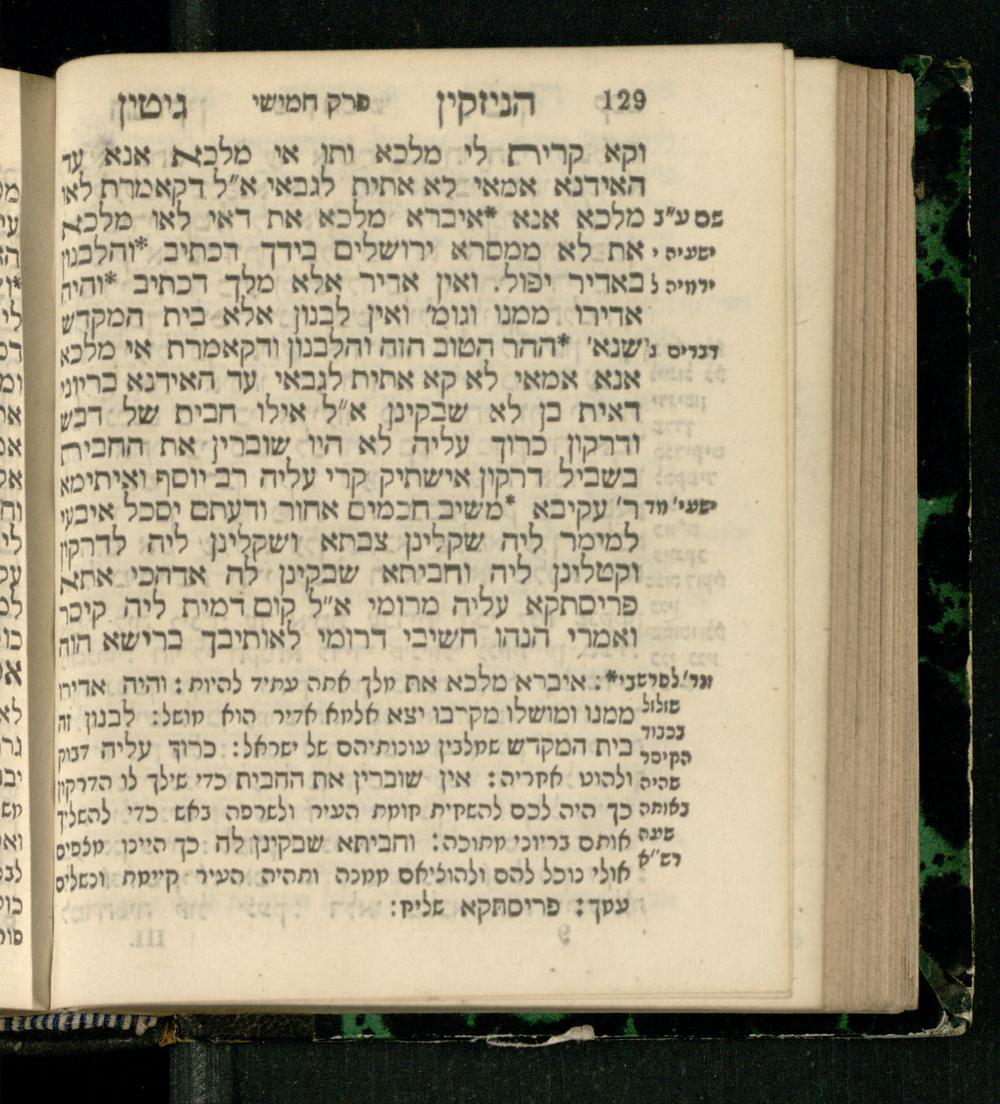 129 הניזקין פרק חמישי גיטין
וקא קרית לי מלכא ותו אי מלכא אנא עד
האידנא אמאי לא אתית לגבאי א״ל דקאמרת לאו
שם ע״ב מלכא אנא *איברא מלכא את דאי לאו מלכא
ישעיה י את לא ממסרא ירושלים בידך דכתיב *והלבנון
ירמיה ל באדיר יפול. ואין אדיר אלא מלך דכתיב *והיה
אדירו ממנו וגומ׳ ואין לבנון אלא בית המקדש
דברים ג שנא׳ *ההר הטוב הזה והלבנון ודקאמרת אי מלכא
אנא אמאי לא קא אתית לגבאי עד האידנא בריוני
דאית בן לא שבקינן א״ל אילו חבית של דבש
ודרקון כרוך עליה לא היו שוברין את החבית
בשביל דרקון אישתיק קרי עליה רב יוסף ואיתימא
ישעי׳ מד ר׳ עקיבא *משיב חכמים אחור ודעתם יסכל איבעי
למימר ליה שקלינן צבתא ושקלינן ליה לדרקון
וקטלינן ליה וחביתא שבקינן לה אדהכי אתא
פריסתקא עליה מרומי א״ל קום דמית ליה קיסר
ואמרי הנהו חשיבי דרומי לאותיבך ברישא הוה
איברא מלכא את מלך אתה עתיד להיות: והיה אדירו
שזלזל ממנו ומושלו מקרבו יצא אלמא אדיר הוא מושל: לבנון זה
בכבוד
הקיסר בית המקדש שמלבין עונותיהם של ישראל: כרוך עליה דבוק
שהיה ולהוט אחריה: אין שוברין את החבית כדי שילך לו הדרקון
באותה כך היה לכם להשחית חומת העיר ולשרפה באש כדי להשליך
שעה אותם בריוני מתוכה: וחביתא שבקינן לה כך היינו מצפים
רש״א אולי נוכל להם ולהוציאם ממנה ותהיה העיר קיימת ונשלים
עמך: פריסתקא שליח:
9